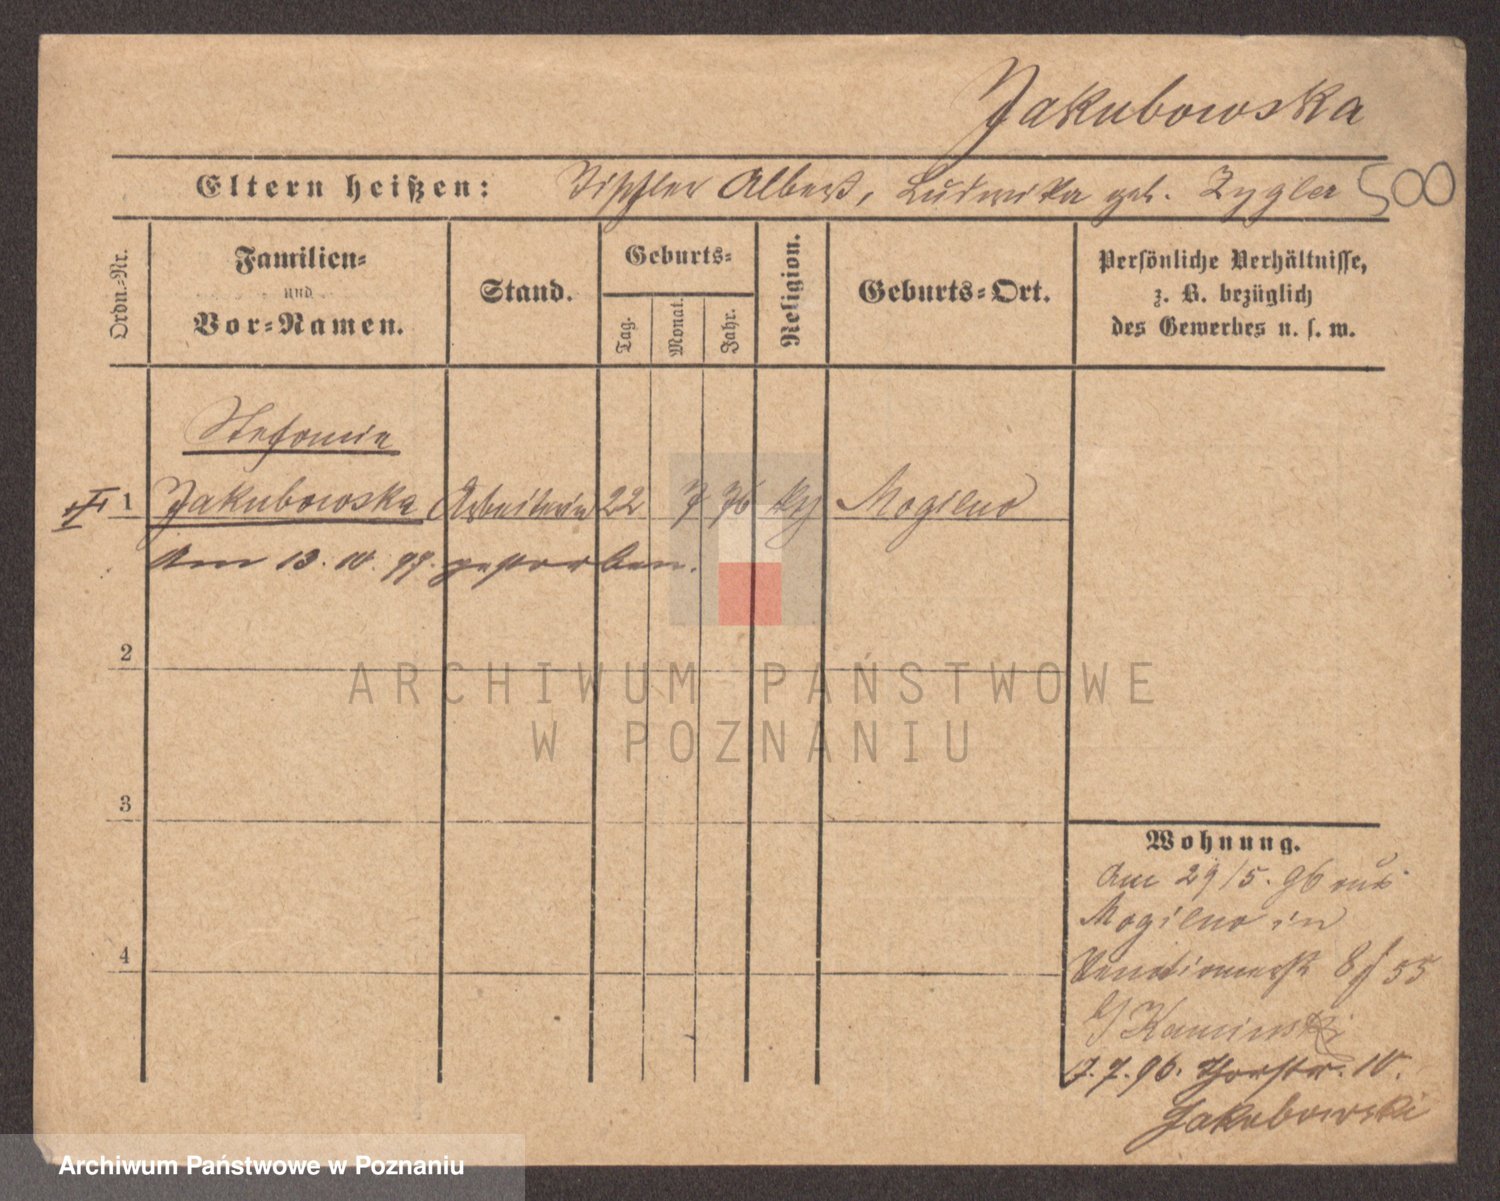 Jakubowska
Eltern heißen: Albert, Ludwika geb. Zygler 500
Ordn.-Nr.
Familien-
und
Vor-Namen.
Stand.
Geburts-
Tag.
Monat.
Jahr.
Religion.
Geburts-Ort.
Persönliche Verhältnisse,
z. B. bezüglich
des Gewerbes u. s. w.
Stefania
1 Jakubowska Arbeiterin 22 7 76 Mogilno
Am 13. 10. 97. gestorben.
2
ARCHIWUM PAŃSTWOWE
W POZNANIU
3
Wohnung.
Am 29/5. 96 aus
Mogilno in
4
8 55
Kaminski
7. 7. 96. Thorstr. 10.
Jakubowski
Archiwum Państwowe w Poznaniu